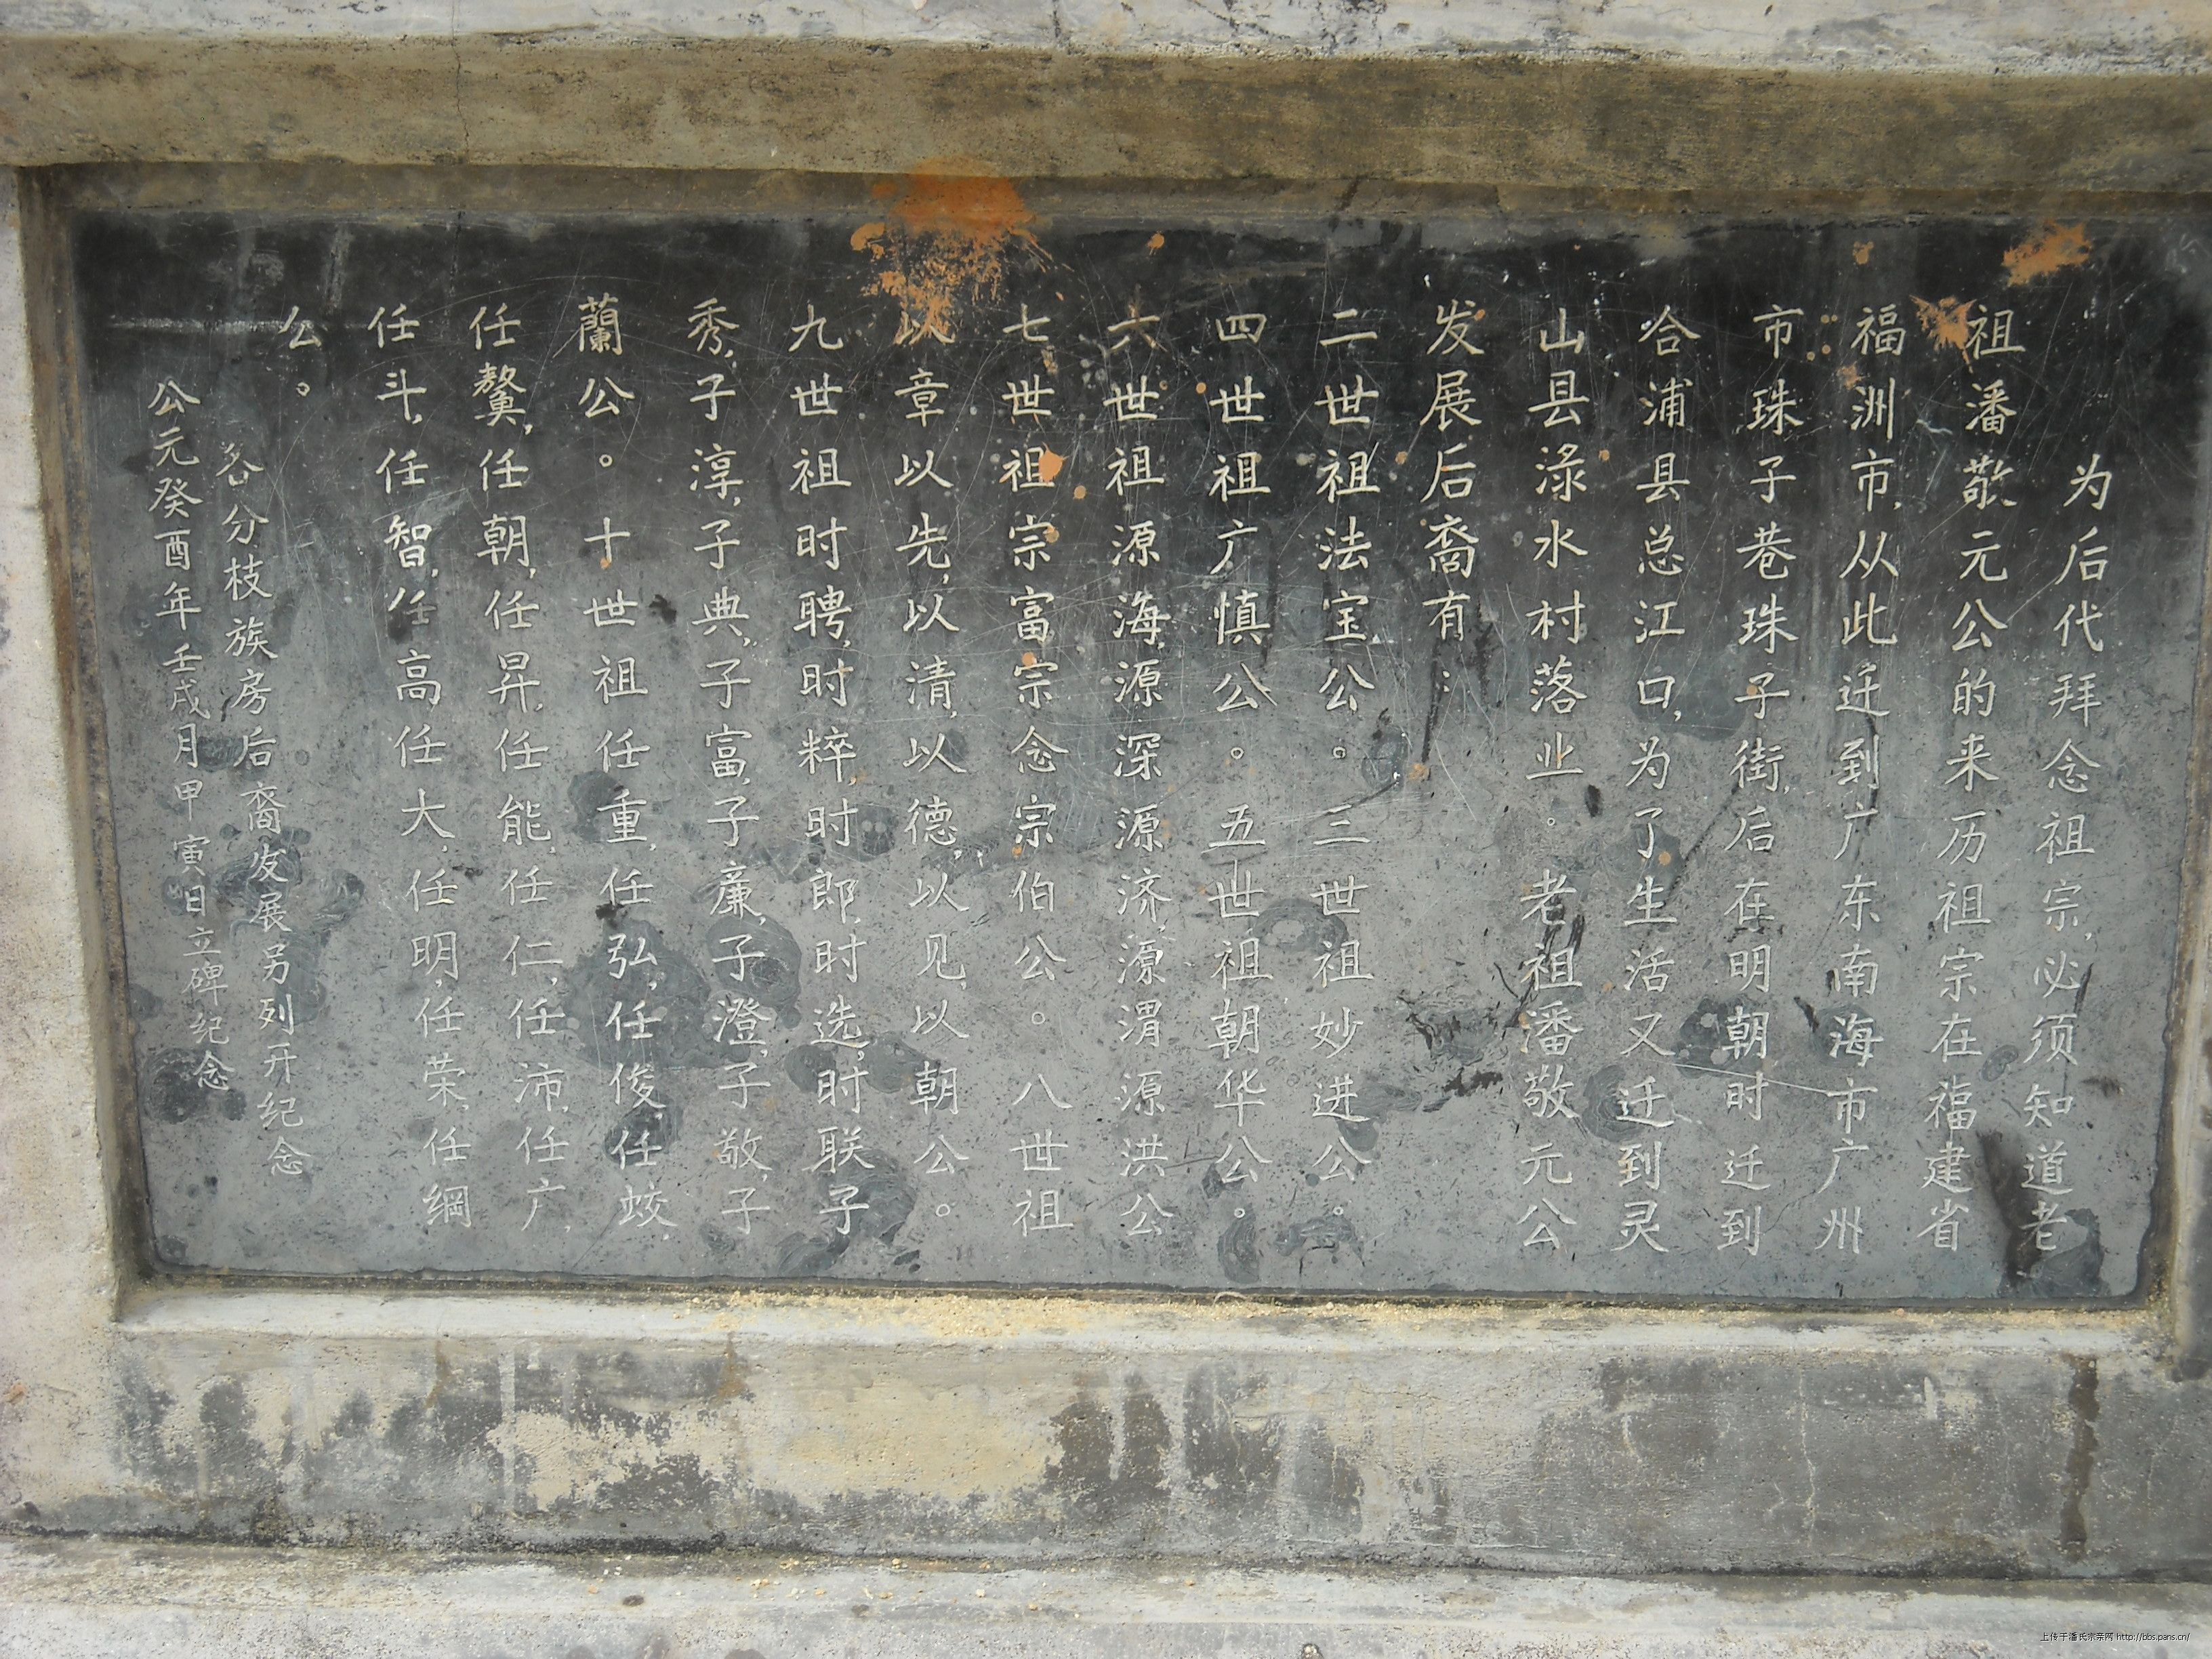 为后代拜念祖宗,必须知道老
祖潘敬元公的来历祖宗在福建省
福洲市,从此迁到广东南海市广州
市珠子巷珠子街,后在明朝时迁到
合浦县总江口,为了生活又迁到灵
山县渌水村落业。老祖潘敬元公
发展后裔有:
二世祖法宝公。三世祖妙进公。
四世祖广慎公。五世祖朝华公。
六世祖源海,源深源济,源渭源洪公
七世祖宗富宗念宗伯公。八世祖
以章以先,以清,以德,以见,以朝公。
九世祖时聘,时粹,时郎,时选,时联子
秀,子淳,子典,子富,子廉,子澄,子敬,子
蘭公。十世祖任重,任弘,任俊,任蛟,
任鰲,任朝,任昇,任能,任仁,任沛,任广,
任斗,任智,任高任大,任明,任荣,任綱
公。
各分枝族房后裔发展另列开纪念
公元癸酉年壬戌月甲寅日立碑纪念
上传于潘氏宗亲网 http://bbs.pans.cn/